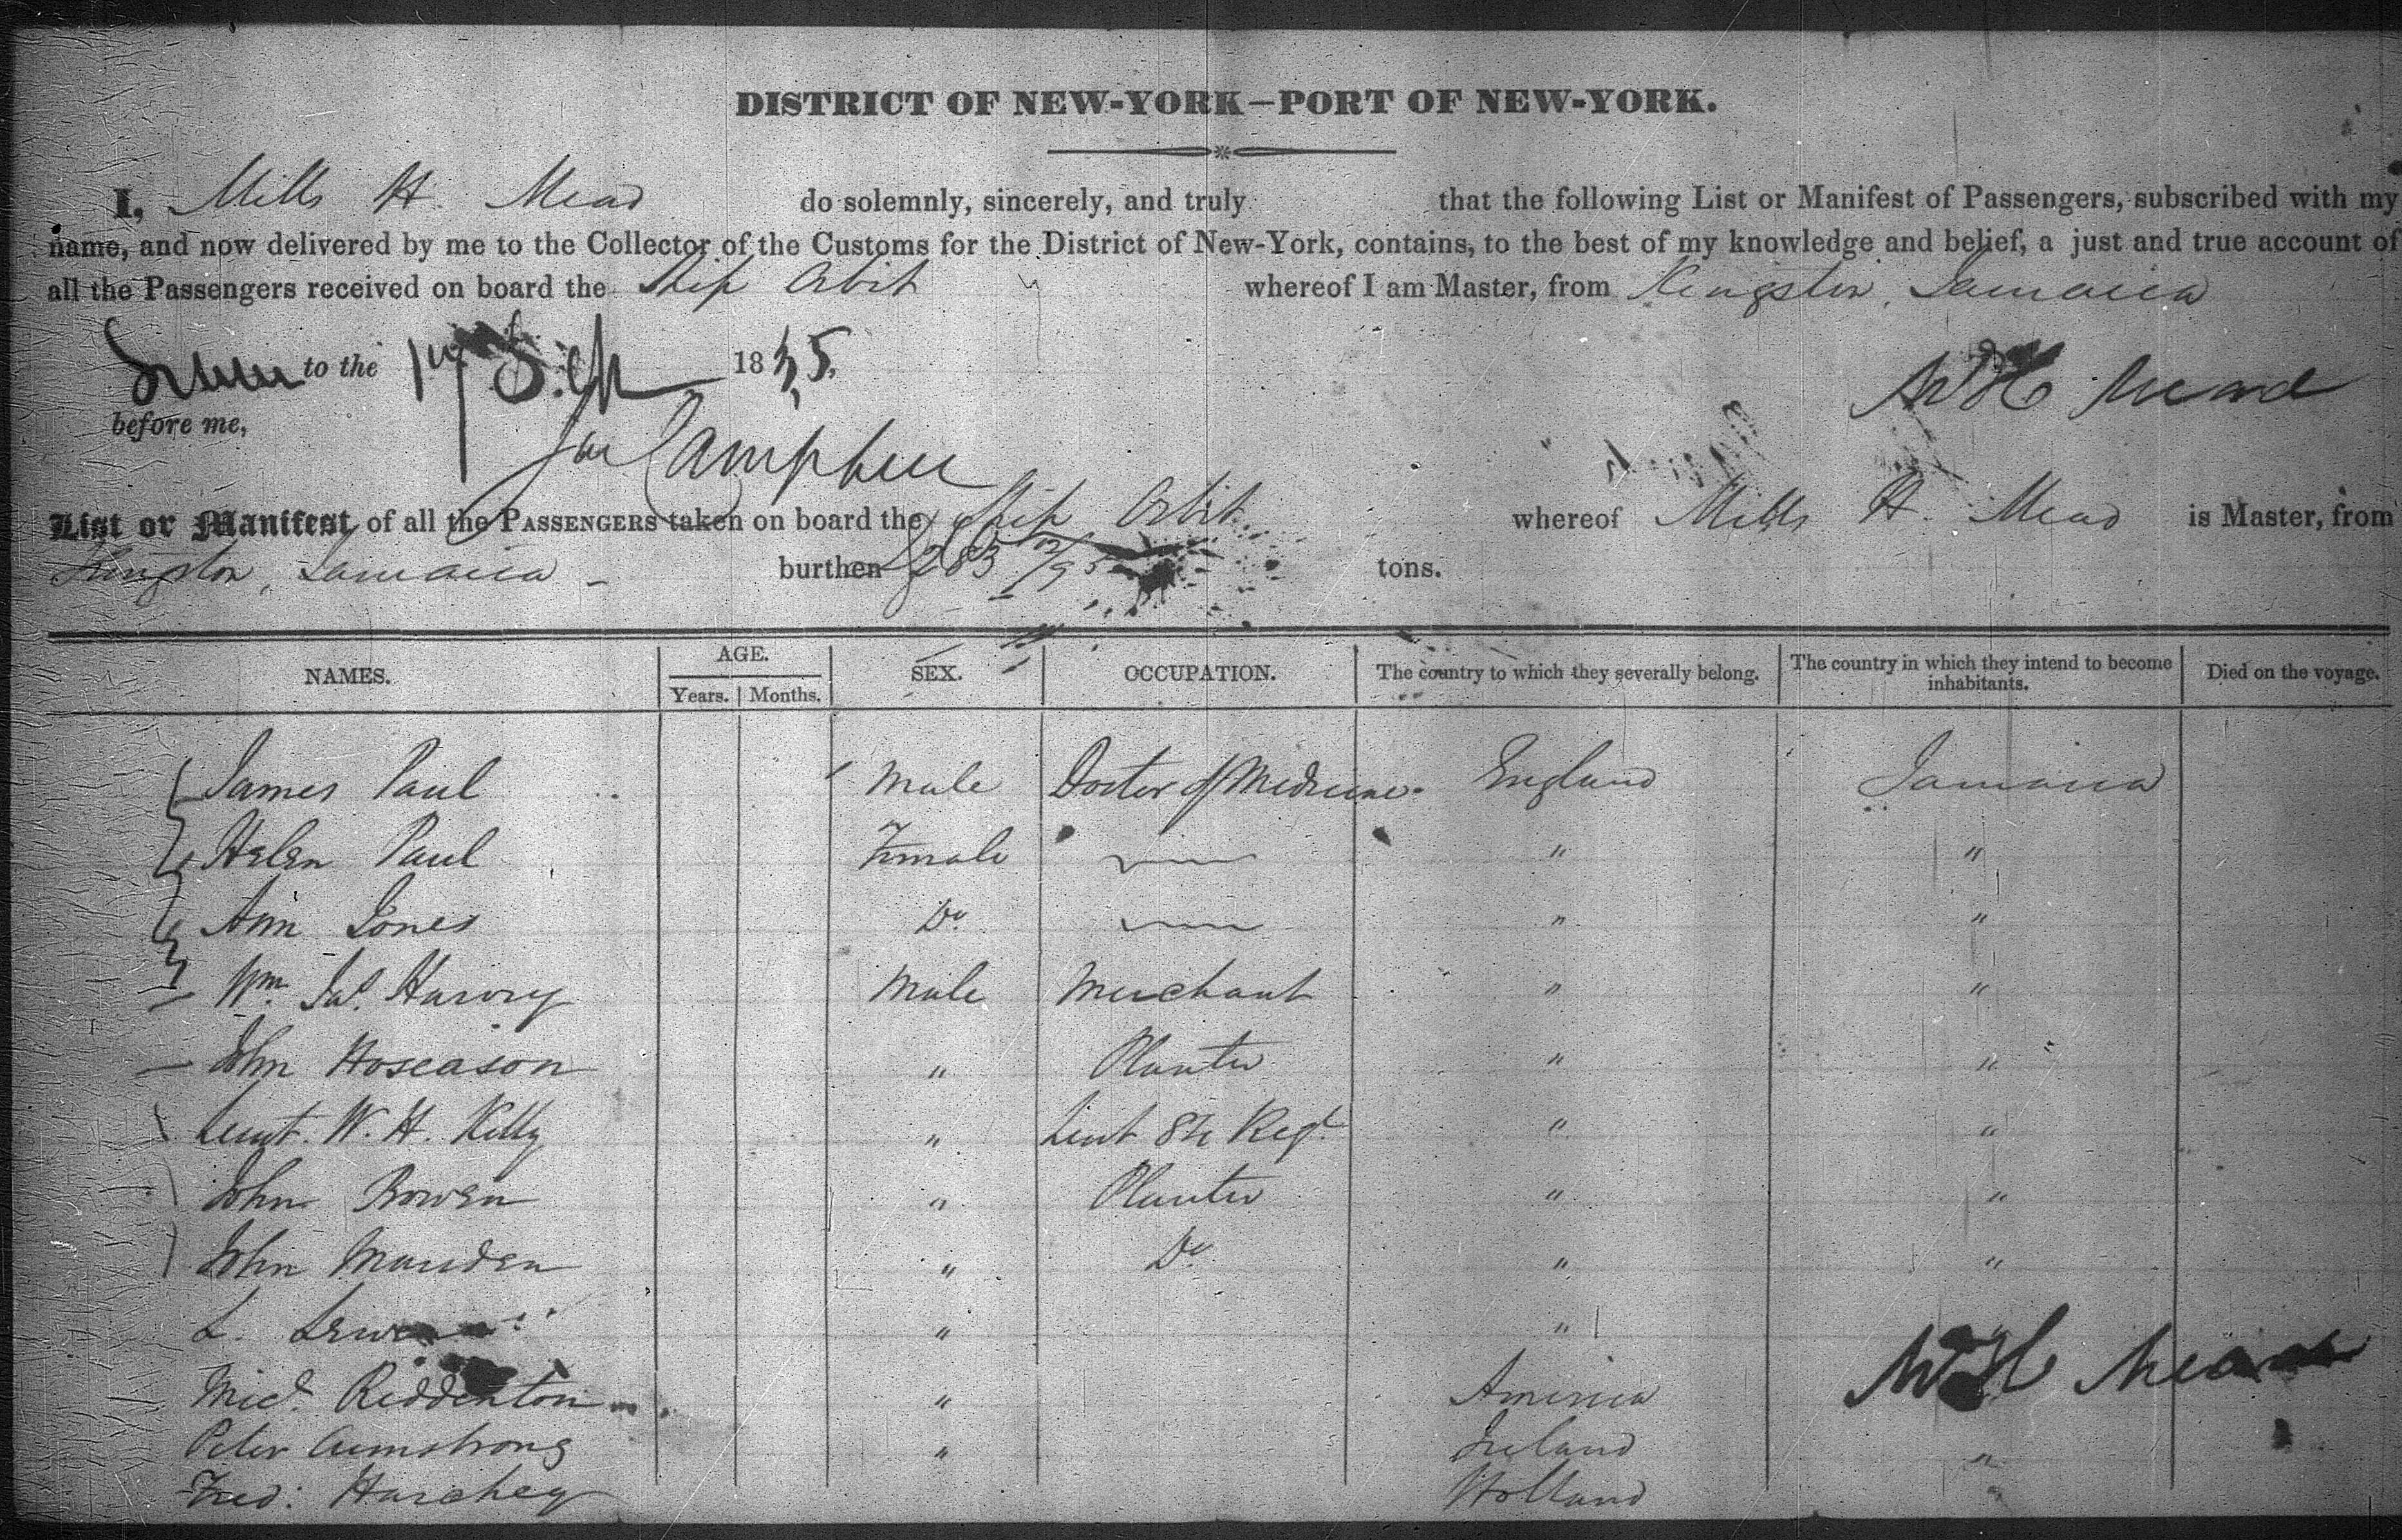 DISTRICT OF NEW-YORK—PORT OF NEW-YORK.
I, Mills H. Mead do solemnly, sincerely, and truly that the following List or Manifest of Passengers, subscribed with my
name, and now delivered by me to the Collector of the Customs for the District of New-York, contains, to the best of my knowledge and belief, a just and true account of
all the Passengers received on board the Ship Orbit whereof I am Master, from Kingston, Jamaica
Sworn to the 17 1835.
before me, M H Mead
Campbell
List or Manifest of all the PASSENGERS taken on board the Ship Orbit whereof Mills H. Mead is Master, from
Kingston, Jamaica - burthen 283 /95 tons.
NAMES. AGE. SEX. OCCUPATION. The country to which they severally belong. The country in which they intend to become inhabitants. Died on the voyage.
Years. Months.
James Paul Male Doctor of Medicine England Jamaica
Helen Paul Female " "
Ann Jones Do " "
Wm. Jas. Harvey Male Merchant " "
John Hoseason " Planter " "
Lieut. W. H. Kelly " Lieut Regt " "
John Bowen " Planter " "
John " Do " "
L. " "
Micl. Riddenton " America M H Mead
Peter Armstrong " Ireland "
Fred: Holland